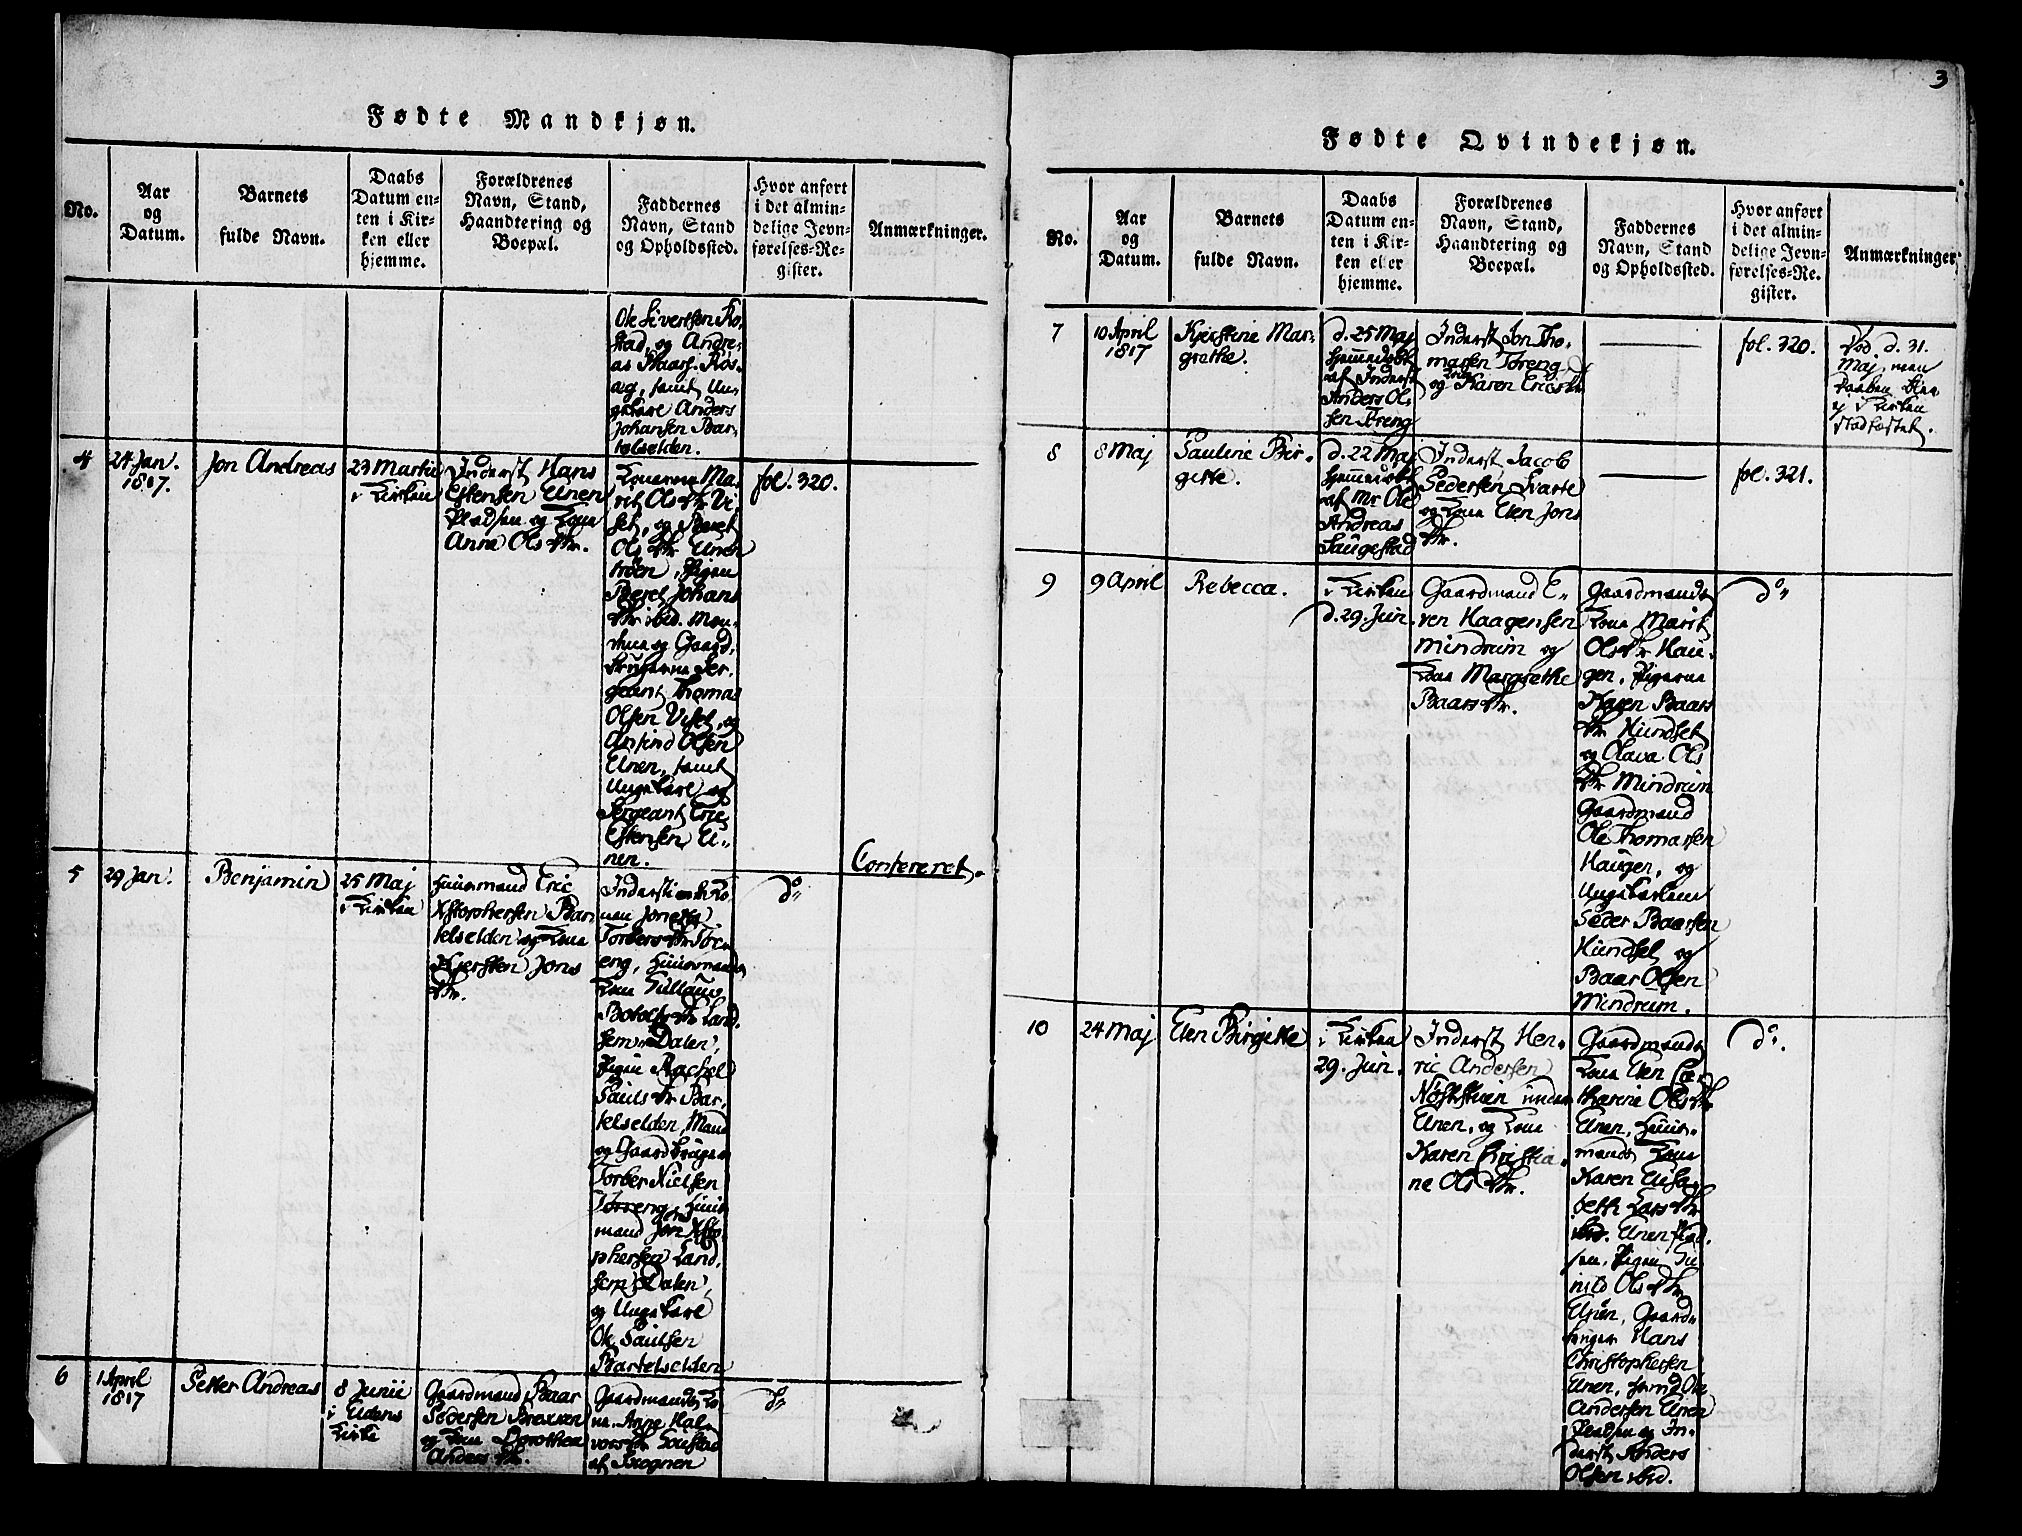 3
Fødte Mandkjøn.
No.
Aar
og
Datum.
Barnets
fulde Navn.
Daabs
Datum en-
ten i Kir-
ken eller
hjemme.
Forældrenes
Navn, Stand,
Haandtering og
Boepæl.
Faddernes
Navn, Stand
og Opholdssted.
Hvor anført
i det almin-
delige Jevn-
førelses-Re-
gister.
Anmærkninger.
Ole Sivertsen
stad, og Andre-
as Baars.
samt Un-
gekarl Anders
Johansen Bar-
telselden.
4
24 Jan.
1817.
Jon Andreas
23 Martii
i Kirken
Inderst Hans
Estensen Unen
Pladsen og Kone
Anna Ols dtr.
Konerne Ma-
rit Ols dtr Vi-
set, og Beret
Ols dtr Unen
trøen, Pigen
Beret Johans
dtr ibd. Mæn-
dene og Gaard-
brugerne Ser-
geant Thomas
Olsen Viset, og
Arfind Olsen
Unen, samt
Ungekarl og
Sergeant Eric
Estensen U-
nen.
fol. 320.
5
29 Jan.
Benjamin
25 Maj
i Kirken
Huusmand Eric
Xstophersen Bar-
telselden og Kone
Kjersten Jons
dtr.
Torbers dtr Tør-
eng, Huusmands
Kone
Dalen,
Pigen Rachel
Pauls dtr Bar-
telselden, Mand
og Gaardbruger
Torber Nielsen
Tørreng, Huus-
mand Jon Xsto-
phersen Land-
sem Dalen,
og Ungekarl
Ole Paulsen
Bartelselden
do
Confereret.
6
1 April
1817
Petter Andreas
8 Junii
i Eidens
Kirke
Gaardmand Baar
Pedersen Brexxen
og Kone Dorothea
Anders dtr.
Gaardmands Ko-
ne Anne Hal-
vors dtr
af Brognen
do
Fødte Qvindekjøn.
No.
Aar
og
Datum.
Barnets
fulde Navn.
Daabs
Datum en-
ten i Kir-
ken eller
hjemme.
Forældrenes
Navn, Stand,
Haandtering og
Boepæl.
Faddernes
Navn, Stand
og Opholdssted.
Hvor anført
i det almin-
delige Jevn-
førelses-Re-
gister.
Anmærkninger
7
10 April
1817
Kjerstine Mar-
grethe.
d. 25 Maj
hjemmedøbt
af Inderst
Anders Ol-
sen Treng
Inderst Jon Tho-
masen Tøreng,
og Kone Karen Erics dtr
fol. 320.
Død d. 31.
Maj, men
Daaben blev
ej i Kirken
stadfæstet.
8
8 Maj
Pauline Bir-
gitte.
d. 22 Maj
hjemmedøbt
af Mr Ole
Andreas
Haugestad
Inderst Jacob
Pedersen Svarte
og Kone Elen Jons
dtr.
fol. 321.
9
9 April
Rebecca.
i Kirken
d. 29. Jun.
Gaardmand E-
ven Haagensen
Mindrum og
Kone Margrethe
Baars dtr.
Gaardmands
Kone Marit
Ols dtr Hau-
gen, Pigerne
Karen Baars
dtr Hundset
og Olava Ols
dtr Mindrum
Gaardmand
Ole Thomassen
Haugen, og
Ungekarlene
Peder Baarsen
Hundset og
Baar Olsen
Mindrum.
do
10
24 Maj
Elen Birgitte
i Kirken
29. Jun.
Inderst Hen-
ric Andersen
Nøststuen under
Unen, og Kone
Karen Christia-
ne Ols dtr.
Gaardmands
Kone Elen Ca-
tharine Ols dtr
Unen, Huus-
mands Kone
Karen Elisa-
beth Lars dtr
ibd. Unen Plad-
sen, Pigen Gu-
nild Ols dtr
Unen, Gaard-
bruger Hans
Christophersen
Unen, samt Ole
Andersen Unen
Pladsen og In-
derst Anders
Olsen ibd.
do.